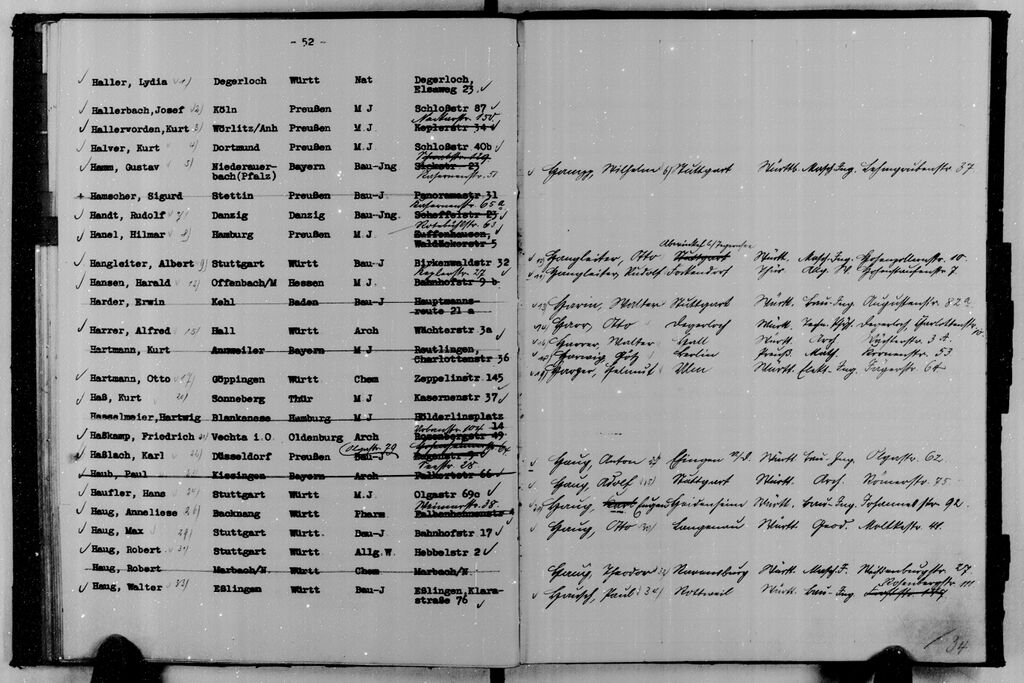 - 52 -
Haller, Lydia 1) Degerloch Württ Nat Degerloch,
Elsaweg 23
Hallerbach, Josef 2) Köln Preußen M J Schloßstr 87
Neckarstr. 150
Hallervorden, Kurt 3) Wörlitz/Anh Preußen M J. Keplerstr 34
Halver, Kurt 4) Dortmund Preußen M J. Schloßstr 40b
Hamm, Gustav 5) Niederauer- Bayern Bau-Jng 23
bach(Pfalz) Kasernenstr. 51
+ Hamscher, Sigurd Stettin Preußen Bau-J Panoramastr 31
Kasernenstr 65a
Handt, Rudolf 7) Danzig Danzig Bau-Jng. Scheffelstr 23
Rotebühlstr. 63
Hanel, Hilmar 8) Hamburg Preußen M J. Zuffenhausen,
Waldäckerstr 5
Hangleiter, Albert 9) Stuttgart Württ Bau-J Birkenwaldstr 32
Keplerstr. 27
Hansen, Harald 12) Offenbach/M Hessen M J. Bahnhofstr 9 b
Harder, Erwin Kehl Baden Bau-J Hauptmanns-
reute 21 a
Harrer, Alfred 15) Hall Württ Arch Wächterstr 3a
Hartmann, Kurt Annweiler Bayern M J Reutlingen,
Charlottenstr 36
Hartmann, Otto 17) Göppingen Württ Chem Zeppelinstr 145
Haß, Kurt 20) Sonneberg Thür M J Kasernenstr 37
Hasselmeier, Hartwig Blankenese Hamburg M J Hölderlinsplatz
14
Haßkamp, Friedrich 21) Vechta i.O. Oldenburg Arch Rosenbergstr 49
Olgastr. 79
Haßlach, Karl 22) Düsseldorf Preußen Bau-J
Seestr 28
Haub, Paul Kissingen Bayern Arch Falkertstr 66
Haufler, Hans 24) Stuttgart Württ M.J. Olgastr 69c
Weimarstr. 38
Haug, Anneliese 26) Backnang Württ Pharm
Haug, Max 29) Stuttgart Württ. Bau-J Bahnhofstr 17
Haug, Robert 31) Stuttgart Württ Allg.W. Hebbelstr 2
Haug, Robert Marbach/N. Württ Chem Marbach/N
Haug, Walter 33) Eßlingen Württ Bau-J Eßlingen, Klara-
straße 76
Hampp, Wilhelm 6) Stuttgart Württb. Masch. Ing. 37
Hangleiter, Otto Stuttgart Württ. Masch. Ing. Hohenzollernstr. 10.
Hangleiter, Rudolf Thür. Allg. W. Hohenstaufenstr. 7
Harin, Walter Stuttgart Württ. Bau-Ing. Augustenstr. 82a
Harr, Otto Degerloch Württ. Techn. Phys. Degerloch, Charlottenstr.
Harrer, Walter Hall Württ. Arch Wächterstr. 3 A.
Hartwig, Götz Berlin Preuß. Math. Römerstr. 53
Helmut Ulm Württ. Elekt.-Ing. Jägerstr. 64
Haug, Anton 25) Ehingen a/D. Württ. Bau-Ing. Olgastr. 62.
Haug, Adolf Stuttgart Württ. Arch. Römerstr. 75
Haug, Karl Eugen Heidenheim Württ. Bau-Ing. 92.
Haug, Otto 30) Langenau Württ. Geod. Moltkestr. 41.
Haug, Theodor 32) Ravensburg Württ. Masch. I. 27
Rosenbergstr. 111
Paul 34) Rottweil Württ. Bau-Ing.
34